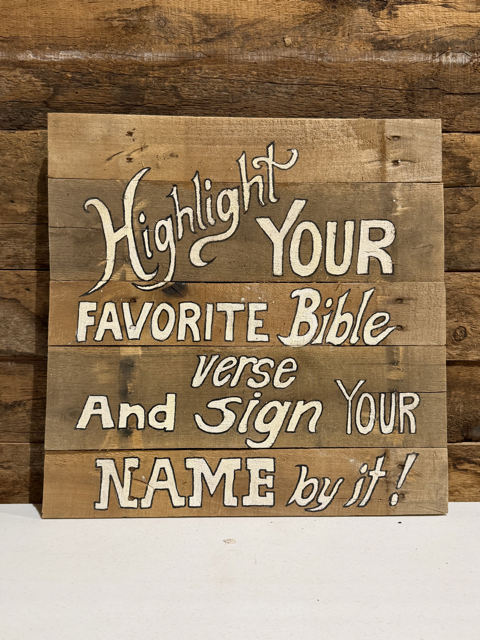 Highlight YOUR
FAVORITE Bible
verse
And sign YOUR
NAME by it!